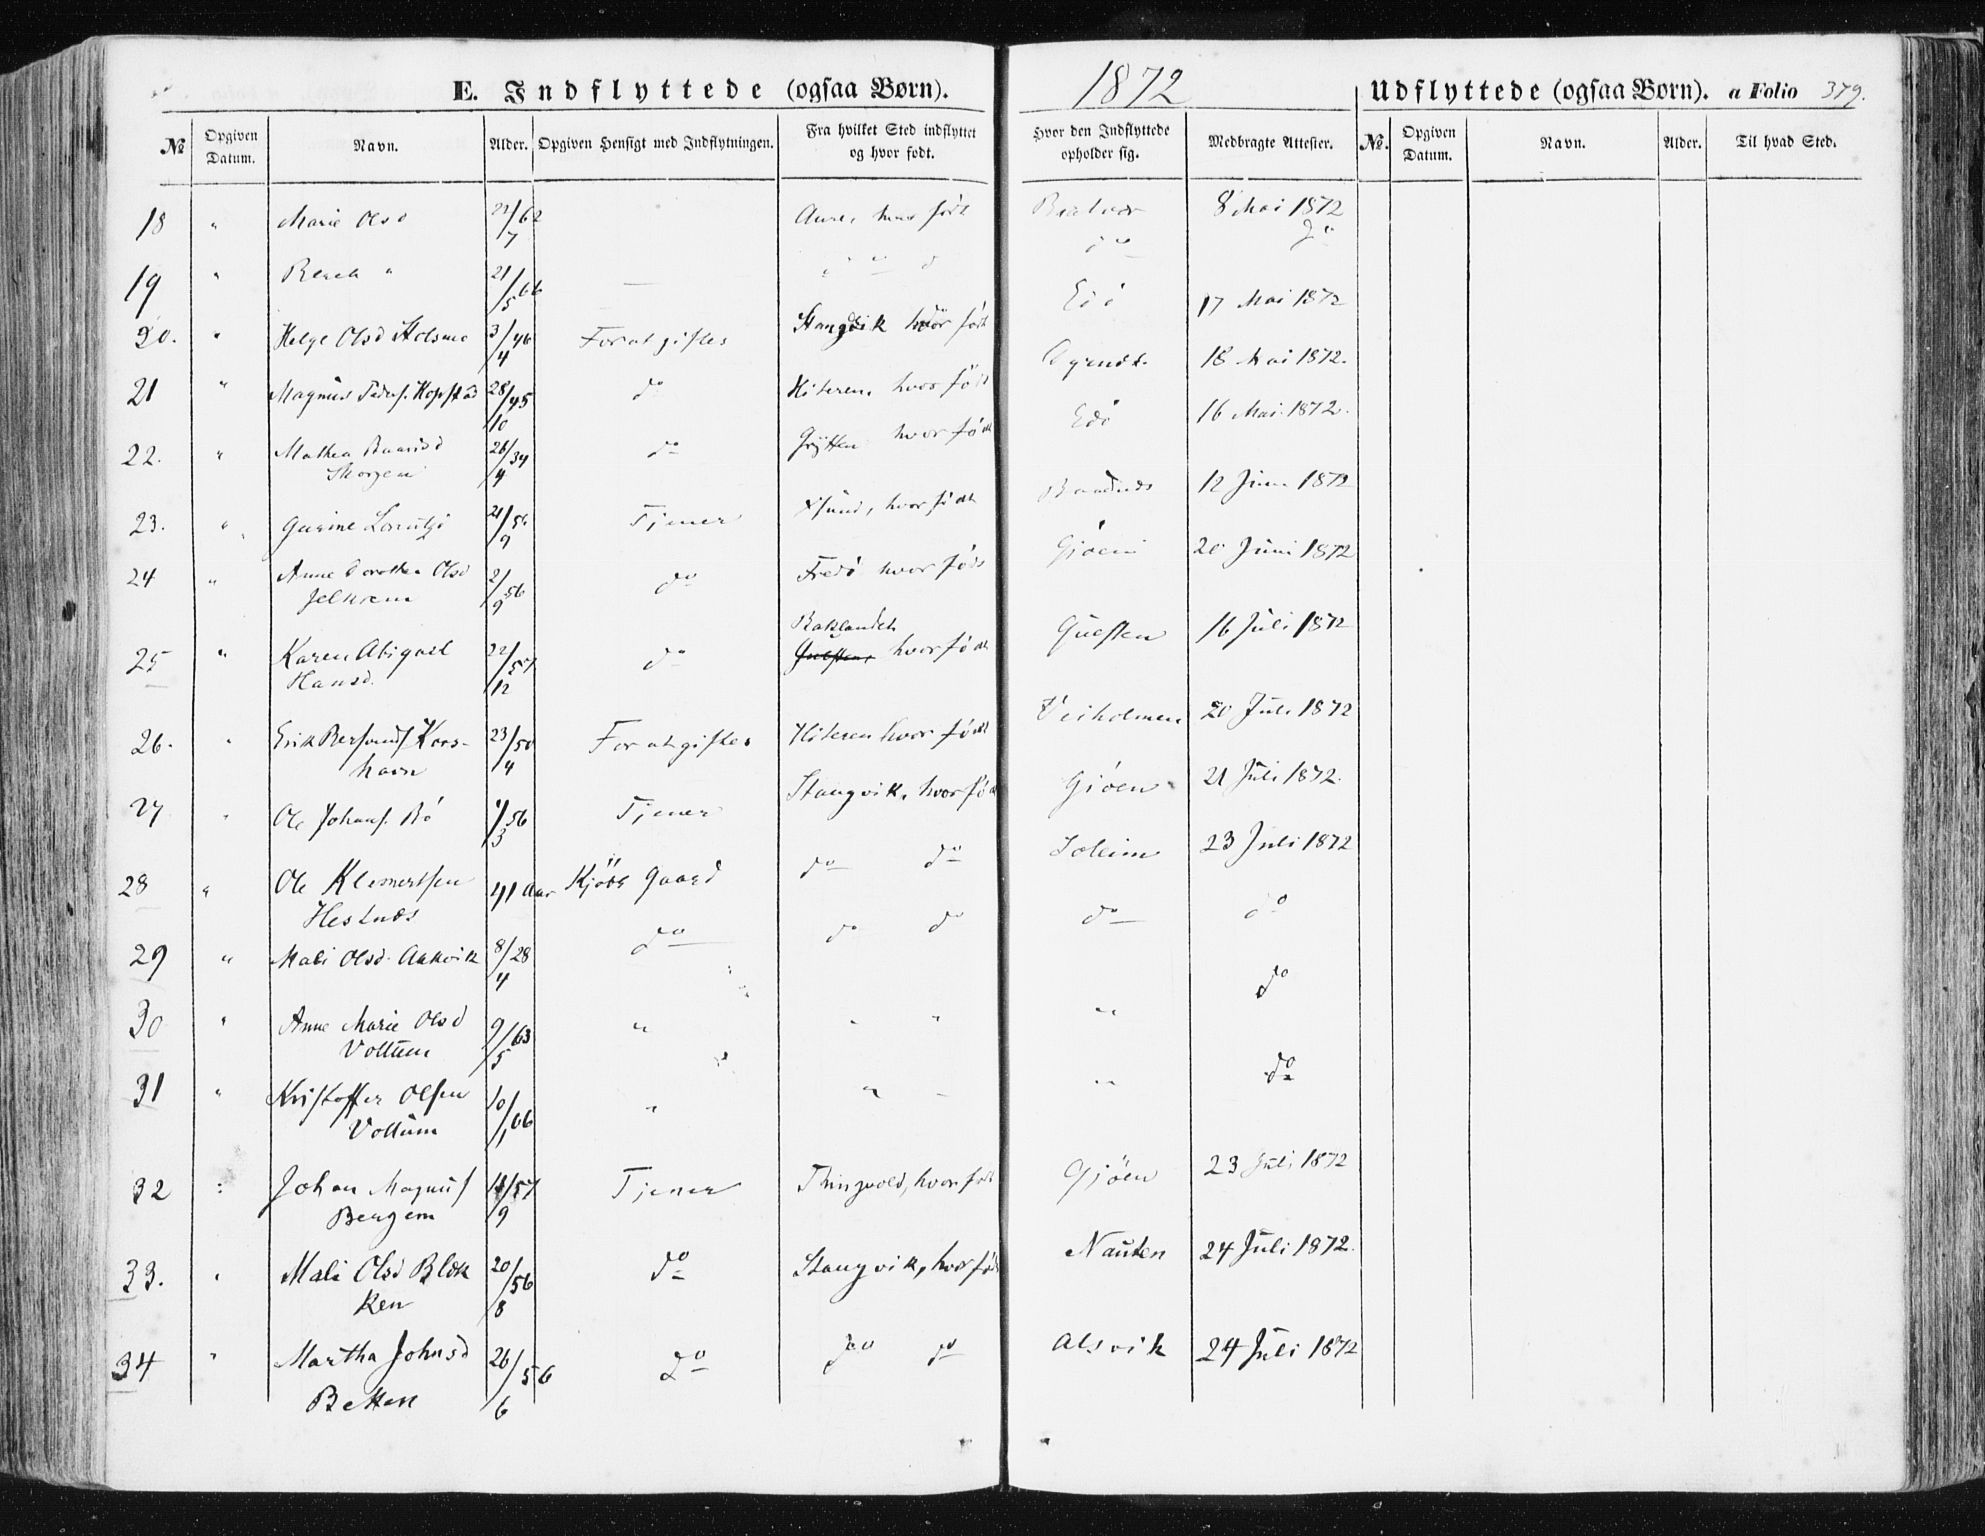 E. Indflyttede (ogsaa Børn).
1872
Udflyttede (ogsaa Børn). a Folio 379.
№ Opgiven Datum. Navn. Alder. Opgiven Hensigt med Indflytningen. Fra hvilket Sted indflyttet og hvor født. Hvor den Indflyttede opholder sig. Medbragte Attester. №. Opgiven Datum. Navn. Alder. Til hvad Sted.
18 " Marie Olsd 22/7 62 Aure, hvor født 8 Mai 1872
19 " " 21/5 66 do do
20. " Helge Olsd Holsmo 3/4 46 For at giftes Stangvik hvor født Edö 17 Mai 1872
21 " Magnus Peders. Kopstad 28/10 45 do Hiteren, hvor født 18 Mai 1872.
22. " Mathea
Skorgen 26/4 34 do Grytten hvor født Edö 16 Mai 1872.
23. " Gurine 21/9 56 Tjener Xsund, hvor født 12 Juni 1872
24 " Anne Dorothea Olsd
Jelkrem 2/9 56 do Fredö hvor føds Gjöen 20 Juni 1872
25 " Karen Abigael
Hansd. 22/12 57 do Baklandet
hvor født 16 Juli 1872
26. " Erik Kors-
havn 23/4 50 For at giftes Hiteren hvor født Veiholmen 20 Juli 1872
27 " Ole Johans. Bö 1/3 56 Tjener Stangvik, hvor fød Gjöen 21 Juli 1872.
28 " Ole Klemertsen
Hestnæs 41 Aar Kjöbt Gaard do do Soleim 23 Juli 1872
29 " Mali Olsd. Aakvik 8/4 28 do do do do do
30 " Anne Marie Olsd
Vollum 9/5 63 " " " " do
31 " Kristoffer Olsen
Vollum 10/1 66 " " " " do
32 " Johan Magnus
Bergem /9 57 Tjener Thingvold, hvor født Gjöen 23 Juli 1872
33. " Mali Olsd Blek
ken 20/8 56 do Stangvik, hvor fød Nauten 24 Juli 1872.
34 " Martha Johnsd
Betten 26/6 56 do do do Alsvik 24 Juli 1872